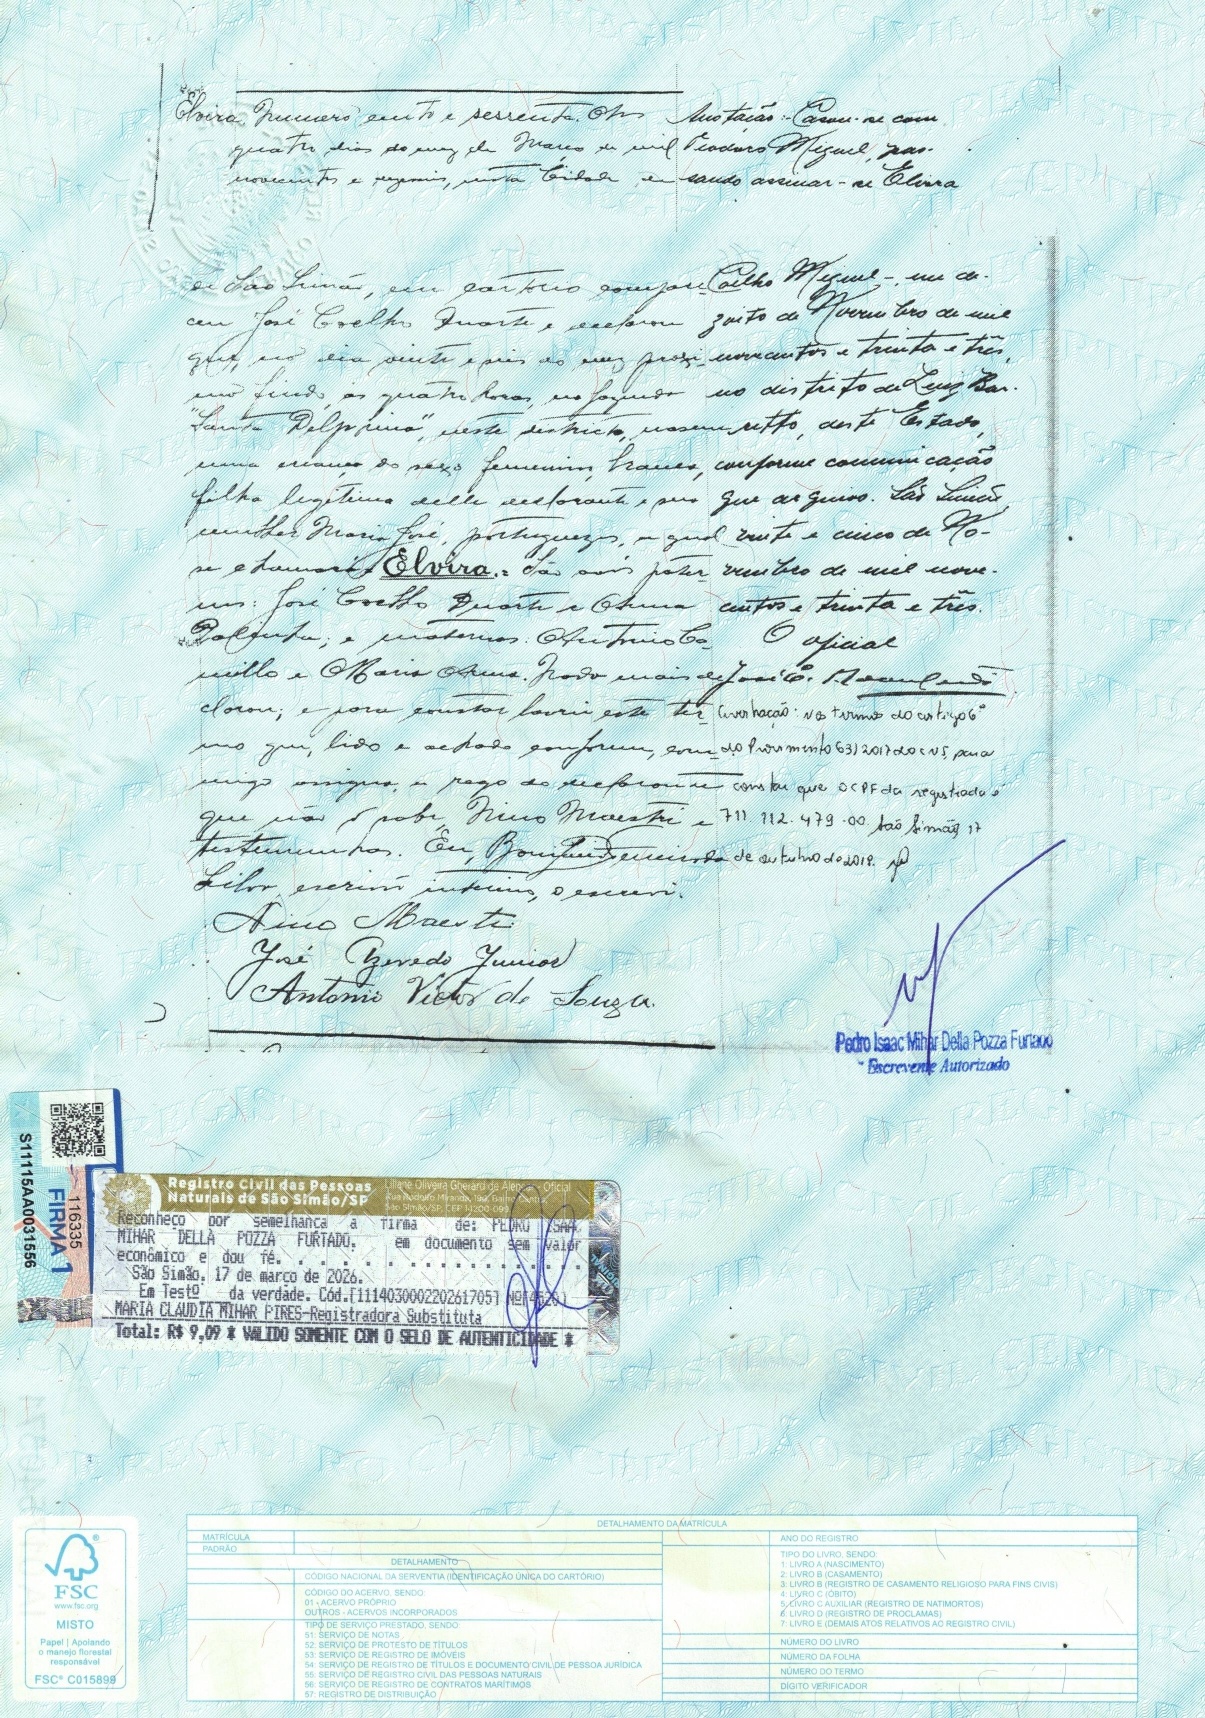 Elvira
Numero cento e sessenta. Aos
quatro dias do mez de Março de mil
novecentos e dezeseis, nesta Cidade
de São Simão, em cartorio compare-
ceu José Coelho Duarte e declarou
que, no dia vinte e seis do mez proxi-
mo findo, ás quatro horas, na fazenda
"Santa Delphina", neste districto, nasceu
uma creança do sexo feminino, branca,
filha legitima delle declarante e sua
mulher Maria José, portuguezes, a qual
se chamará Elvira. São avós pater-
nos: José Coelho Duarte e Anna
e maternos: Antonio Ca-
millo e Maria Anna. Nada mais de-
clarou; e para constar lavrei este ter-
mo que, lido e achado conforme, com-
migo assigna, a rogo do declarante
que não sabe, Nino Maestri e
testemunhas. Eu,
Silva, escrivão interino, o escrevi.
Nino Maestri
José Azevedo Junior
Antonio Victor de Souza.
Anotação:- Casou-se com
Teodoro Miguel, pas-
sando assinar-se Elvira
Coelho Miguel -, em de-
zoito de Novembro de mil
novecentos e trinta e três,
no distrito de Luiz Bar-
retto, deste Estado,
conforme comunicação
que arquivo. São Simão,
vinte e cinco de No-
vembro de mil nove-
centos e trinta e três.
O oficial
Averbação: nos termos do artigo 6º
do Provimento 63/2017 do CNJ, para
constar que o CPF da registrada é
711.112.479-00. São Simão, 17
de outubro de 2019.
Pedro Isaac Mihar Della Pozza Furtado
Escrevente Autorizado
S11115AA0031556
116335
FIRMA 1
Registro Civil das Pessoas
Naturais de São Simão/SP
Liliane Oliveira Gherard de Alencar - Oficial
Rua Rodolfo Miranda, 193, Bairro Centro,
São Simão/SP, CEP 14200-093
Reconheço por semelhanca a firma de: PEDRO ISAAC
MIHAR DELLA POZZA FURTADO, em documento sem valor
econômico e dou fé. . . . . . . . . . . . . . . . . .
São Simão, 17 de março de 2026.
Em Testº da verdade. Cód.[1114030002202617051] Nº[4520]
MARIA CLAUDIA MIHAR PIRES-Registradora Substituta
Total: R$ 9,09 * VALIDO SOMENTE COM O SELO DE AUTENTICIDADE *
FSC
www.fsc.org
MISTO
Papel | Apoiando
o manejo florestal
responsável
FSC® C015899
DETALHAMENTO DA MATRÍCULA
MATRÍCULA
PADRÃO
DETALHAMENTO
CÓDIGO NACIONAL DA SERVENTIA (IDENTIFICAÇÃO ÚNICA DO CARTÓRIO)
CÓDIGO DO ACERVO, SENDO:
01 - ACERVO PRÓPRIO
OUTROS - ACERVOS INCORPORADOS
TIPO DE SERVIÇO PRESTADO, SENDO
51: SERVIÇO DE NOTAS
52: SERVIÇO DE PROTESTO DE TÍTULOS
53: SERVIÇO DE REGISTRO DE IMÓVEIS
54: SERVIÇO DE REGISTRO DE TÍTULOS E DOCUMENTO CIVIL DE PESSOA JURÍDICA
55: SERVIÇO DE REGISTRO CIVIL DAS PESSOAS NATURAIS
56: SERVIÇO DE REGISTRO DE CONTRATOS MARÍTIMOS
57: REGISTRO DE DISTRIBUIÇÃO
ANO DO REGISTRO
TIPO DO LIVRO, SENDO:
1: LIVRO A (NASCIMENTO)
2: LIVRO B (CASAMENTO)
3: LIVRO B (REGISTRO DE CASAMENTO RELIGIOSO PARA FINS CIVIS)
4: LIVRO C (ÓBITO)
5: LIVRO C AUXILIAR (REGISTRO DE NATIMORTOS)
6: LIVRO D (REGISTRO DE PROCLAMAS)
7: LIVRO E (DEMAIS ATOS RELATIVOS AO REGISTRO CIVIL)
NÚMERO DO LIVRO
NÚMERO DA FOLHA
NÚMERO DO TERMO
DÍGITO VERIFICADOR